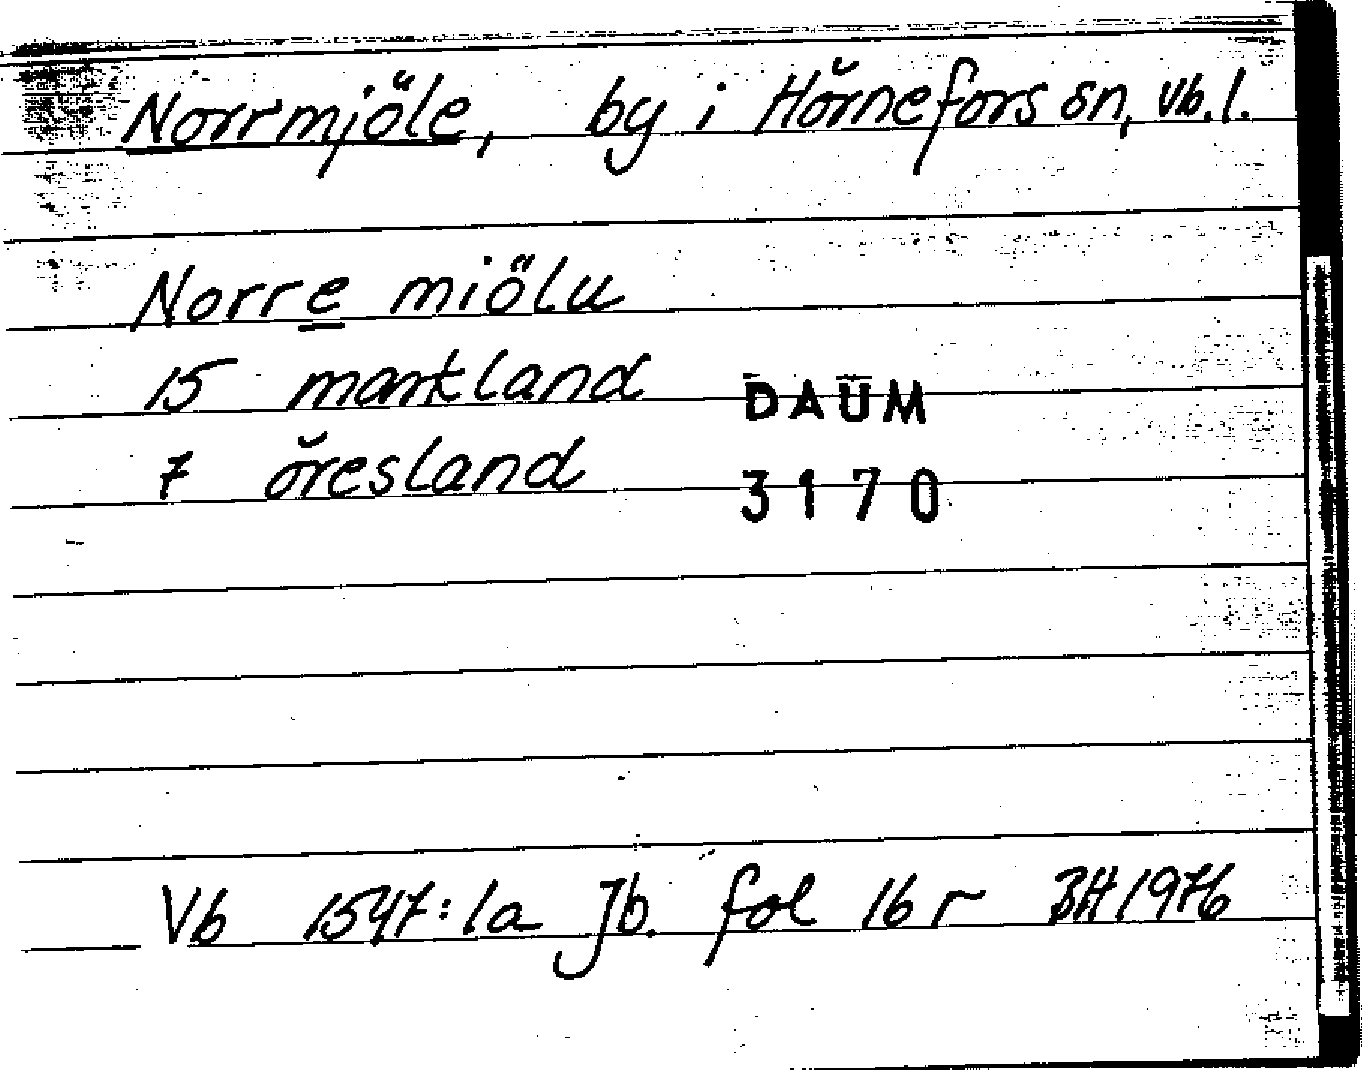 Norrmjöle, by i Hörnefors sn, Vb.l.
Norre miölu
15 markland
7 öresland
DAUM
3170
Vb 1547:1a Jb. fol 16 r BH 1976